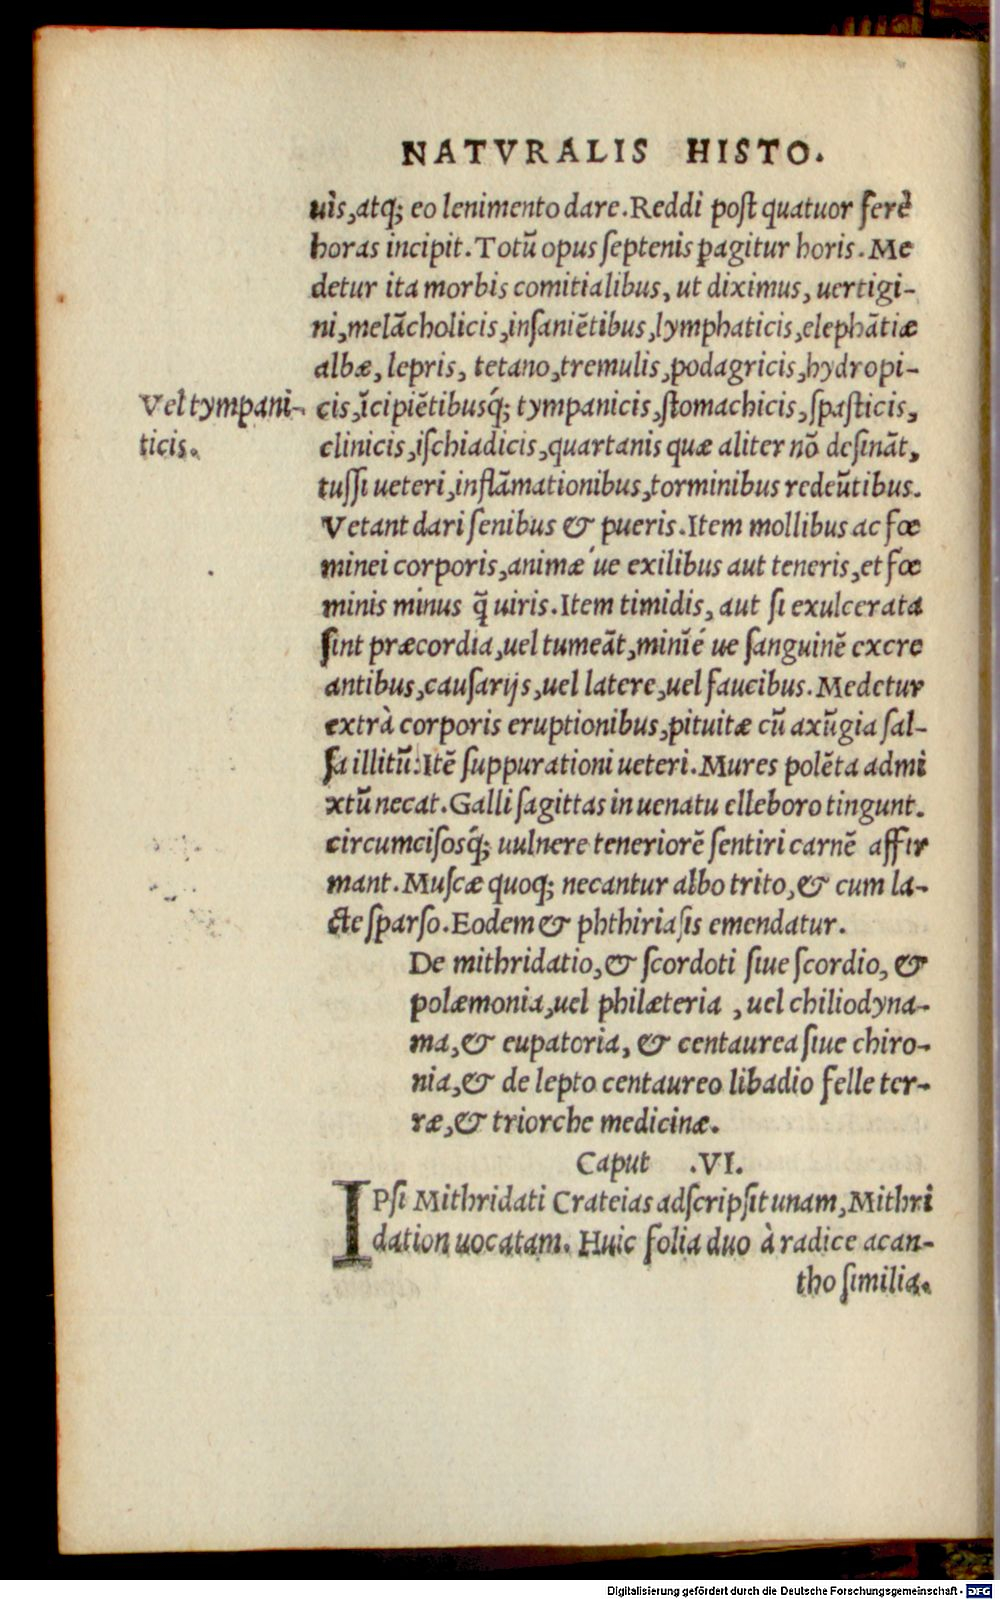 NATVRALIS HISTO.
uis,atq; eo lenimento dare.Reddi post quatuor ferè
horas incipit.Totũ opus septenis ꝑagitur horis.Me
detur ita morbis comitialibus, ut diximus, uertigi-
ni,melãcholicis,insaniẽtibus,lymphaticis,elephãtiæ
albæ, lepris, tetano,tremulis,podagricis,hydropi-
Vel tympani-
ticis.
cis,ĩcipiẽtibusq́; tympanicis,stomachicis,spasticis,
clinicis,ischiadicis,quartanis quæ aliter nõ desinãt,
tussi ueteri,inflãmationibus,torminibus redeũtibus.
Vetant dari senibus & pueris.Item mollibus ac fœ
minei corporis,animæ ́ue exilibus aut teneris,et fœ
minis minus q̃ uiris.Item timidis, aut si exulcerata
sint præcordia,uel tumeãt,minĩé ue sanguinẽ excre
antibus,causarijs,uel latere,uel faucibus.Medetur
extrà corporis eruptionibus,pituitæ cũ axũgia sal-
sa illitũ:Itẽ suppurationi ueteri.Mures polẽta admi
xtũ necat.Galli sagittas in uenatu elleboro tingunt.
circumcisosq́; uulnere teneriorẽ sentiri carnẽ affir
mant.Muscæ quoq; necantur albo trito,& cum la-
cte sparso.Eodem & phthiriasis emendatur.
De mithridatio,& scordoti siue scordio, &
polæmonia,uel philæteria , uel chiliodyna-
ma,& eupatoria, & centaurea siue chiro-
nia,& de lepto centaureo libadio felle ter-
ræ,& triorche medicinæ.
Caput .VI.
IPsi Mithridati Crateias adscripsit unam,Mithri
dation uocatam. Huic folia duo à radice acan-
tho similia.
Digitalisierung gefördert durch die Deutsche Forschungsgemeinschaft - DFG